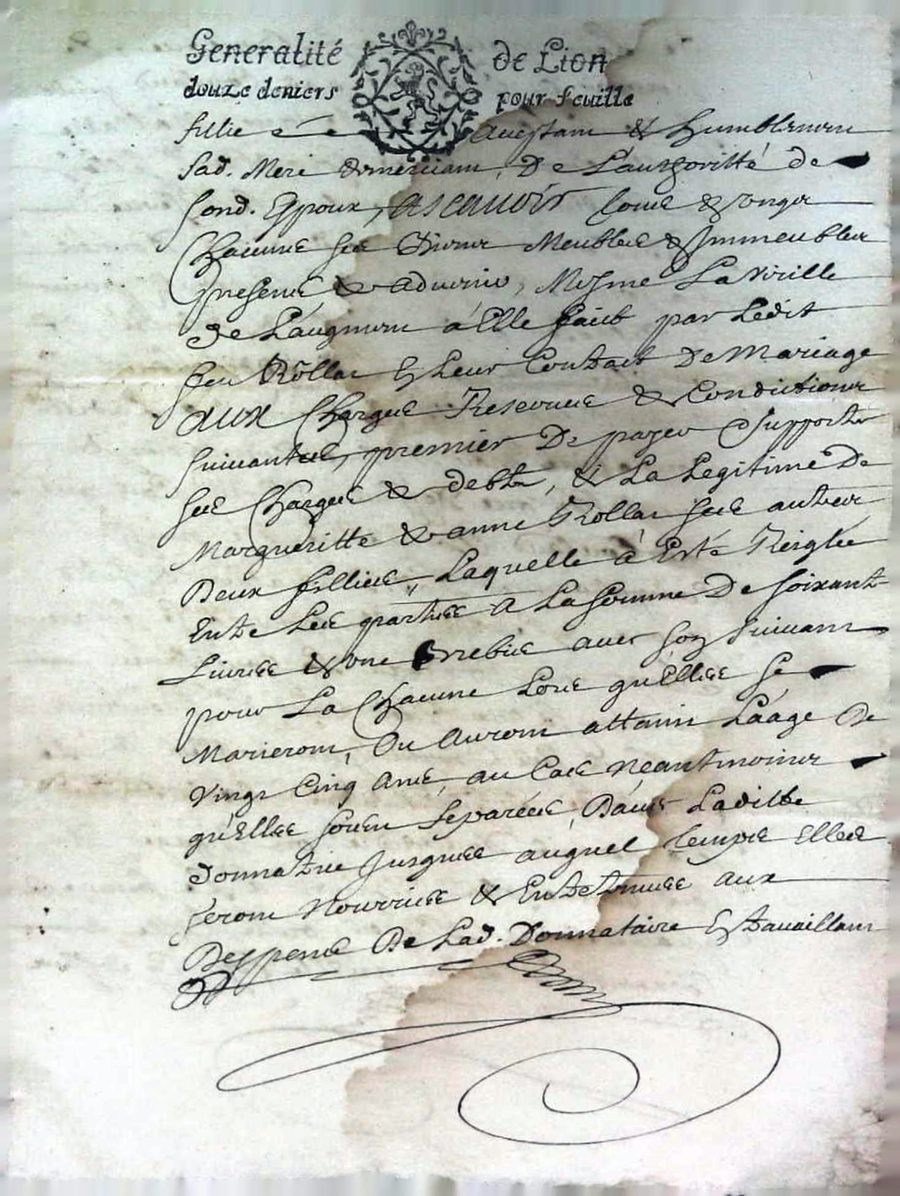 Generalité de Lion
douze deniers pour feuille
fillie acceptant & humblemant
lad. Mere Remerciant, De L'authoritté de
sond. Espoux, Ascauoir tous & ungs
Chacuns ses Biens Meubles & Immeubles
presens & aduenir, Mesme La Virille
de L'augment à Elle faict par Ledit
feu Rollas En Leur Contrait De Mariage
aux Charges Reserves & Conditions
suivantes, premier De payer & supporter
ses Charges & debtes, & La Legitime De
Margueritte & anne Rollas ses autres
Deux fillies, Laquelle à Esté Reiglée
Entre Les parties A La somme De soixante
Livres & une brebis avec son suivant
pour La Chacune Lors qu'Elles se
Marieront, Ou auront attaint L'aage De
Vingt Cinq Ans, au Cas neantmoins
qu'Elles soient Separées D'avec Laditte
Donnatrice jusques auquel temps Elles
seront Nourries & Entretenues aux
Despens De Lad. Donnataire En travaillant